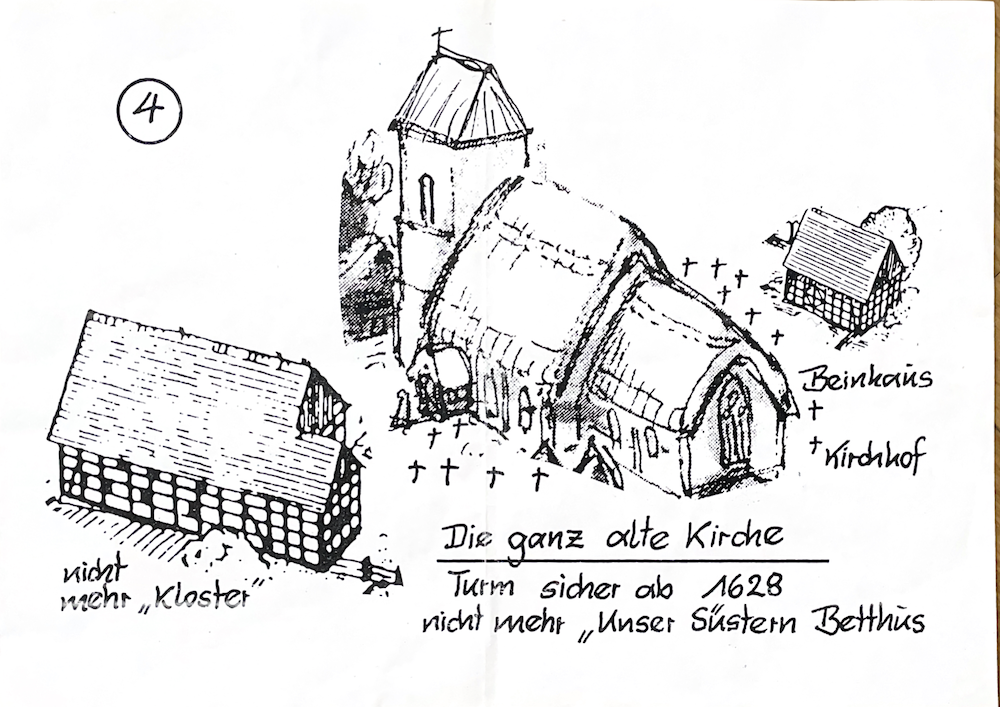 4
Beinhaus
Kirchhof
Die ganz alte Kirche
Turm sicher ab 1628
nicht mehr „Unser Süstern Betthüs
nicht
mehr „Kloster“